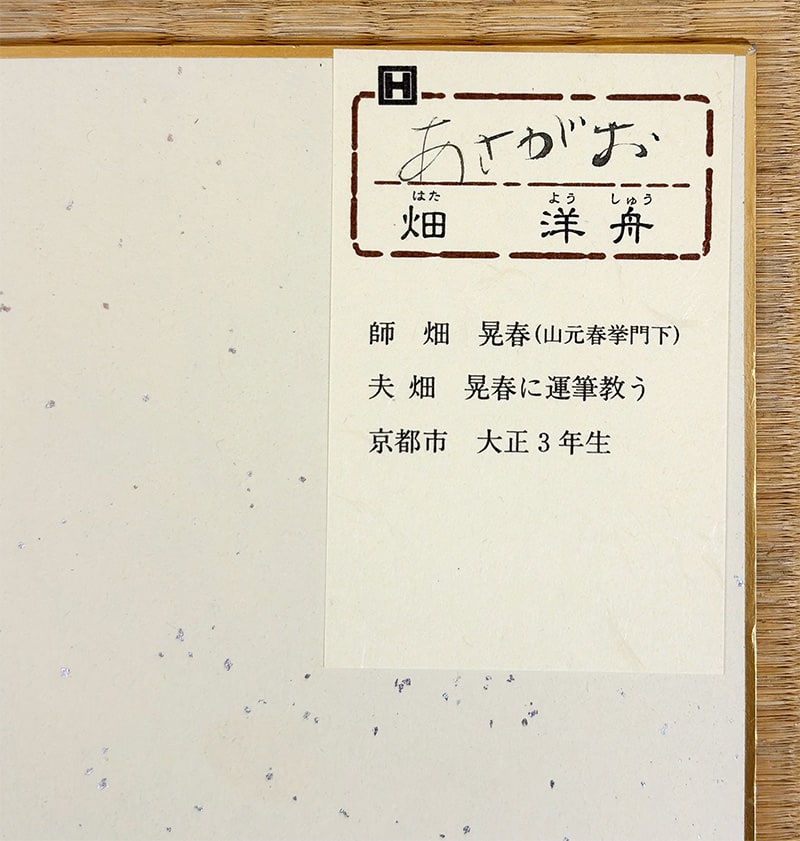 H
あさがお
はた よう しゅう
畑 洋舟
師 畑 晃春(山元春挙門下)
夫 畑 晃春に運筆教う
京都市 大正3年生